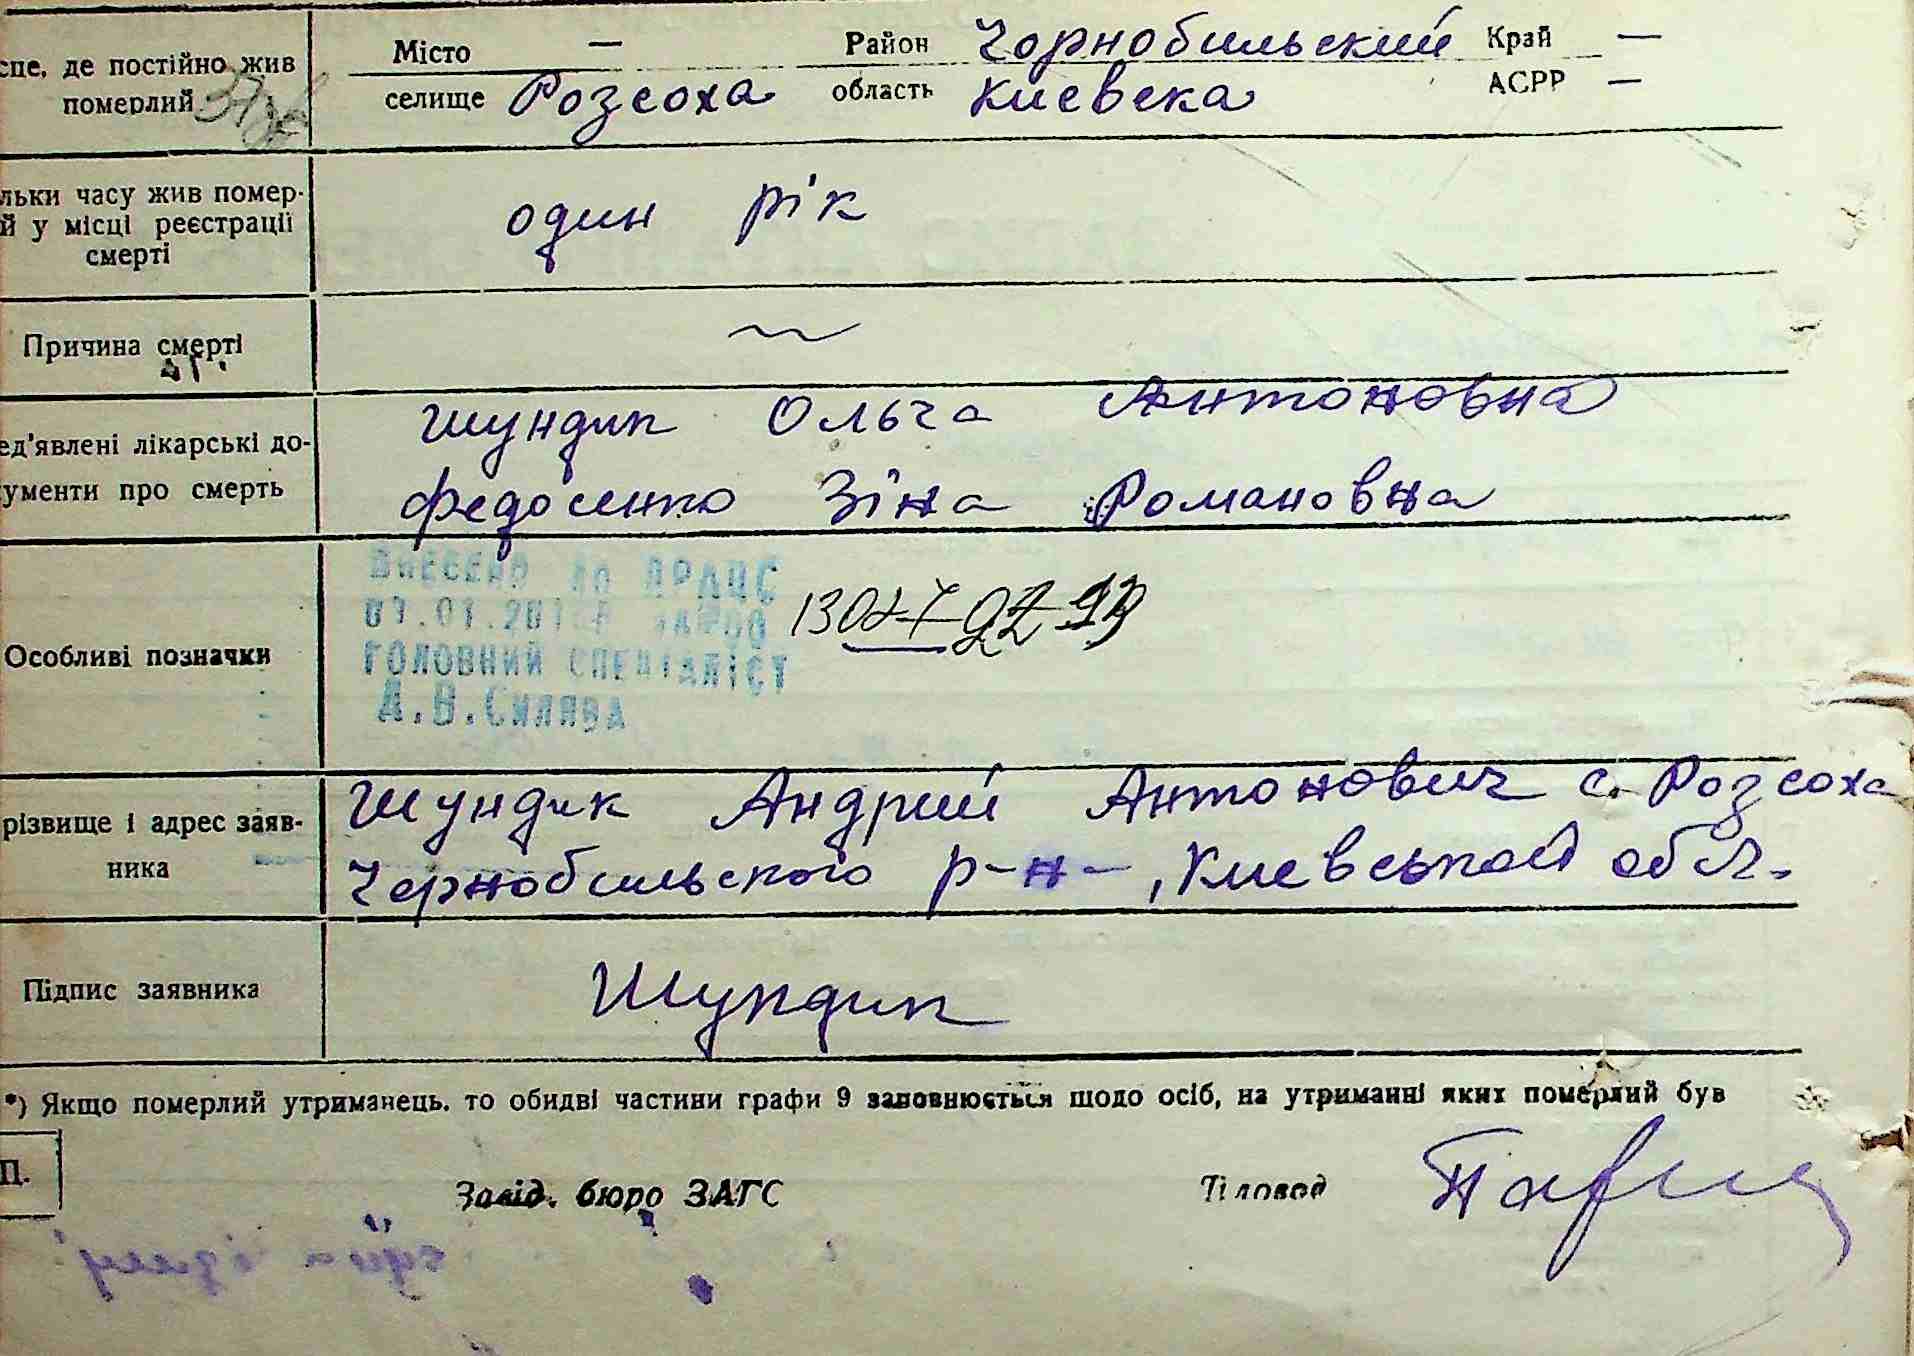 Місто — Район Чорнобильский Край —
спе, де постійно жив померлий
селище Розсоха область Киевска АСРР —
льки часу жив помер-
й у місці реєстрації
смерті
один рік
Причина смерті
—
ед'явлені лікарські до-
ументи про смерть
Шундик Ольга Антоновна
Федосенко Зіна Романовна
Особливі позначки
Внесено до ДРАЦС
ГОЛОВНИЙ СПЕЦІАЛІСТ
А.В.Силява
різвище і адрес заяв-
ника
Шундик Андрий Антонович с. Розсоха
Чернобильского р-н-, Киевськой обл.
Підпис заявника
Шундик
*) Якщо померлий утриманець. то обидві частини графи 9 заповнюється щодо осіб, на утриманні яких померлий був
П.
Завід. бюро ЗАГС Діловод